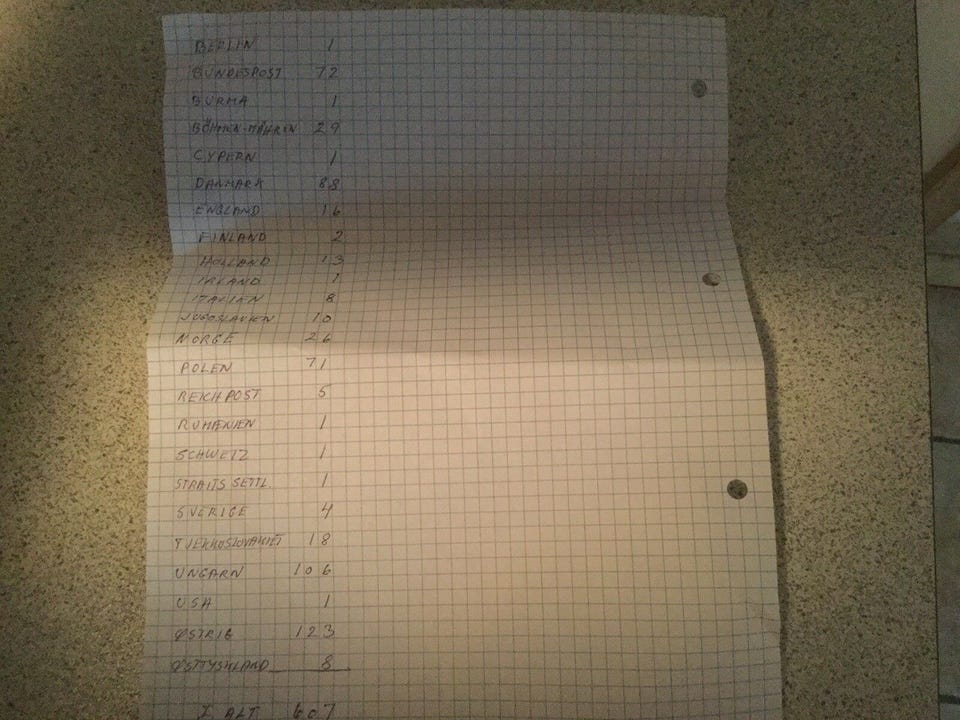 BERLIN 1
BUNDESPOST 72
BURMA 1
BÖHMEN-MÄHREN 29
CYPERN 1
DANMARK 88
ENGLAND 16
FINLAND 2
HOLLAND 13
IRLAND 1
ITALIEN 8
JUGOSLAVIEN 10
NORGE 26
POLEN 71
REICHPOST 5
RUMÆNIEN 1
SCHWEIZ 1
STRAITS SETTL. 1
SVERIGE 4
TJEKKOSLOVAKIET 18
UNGARN 106
USA 1
ØSTRIG 123
ØSTTYSKLAND 8
I ALT 607